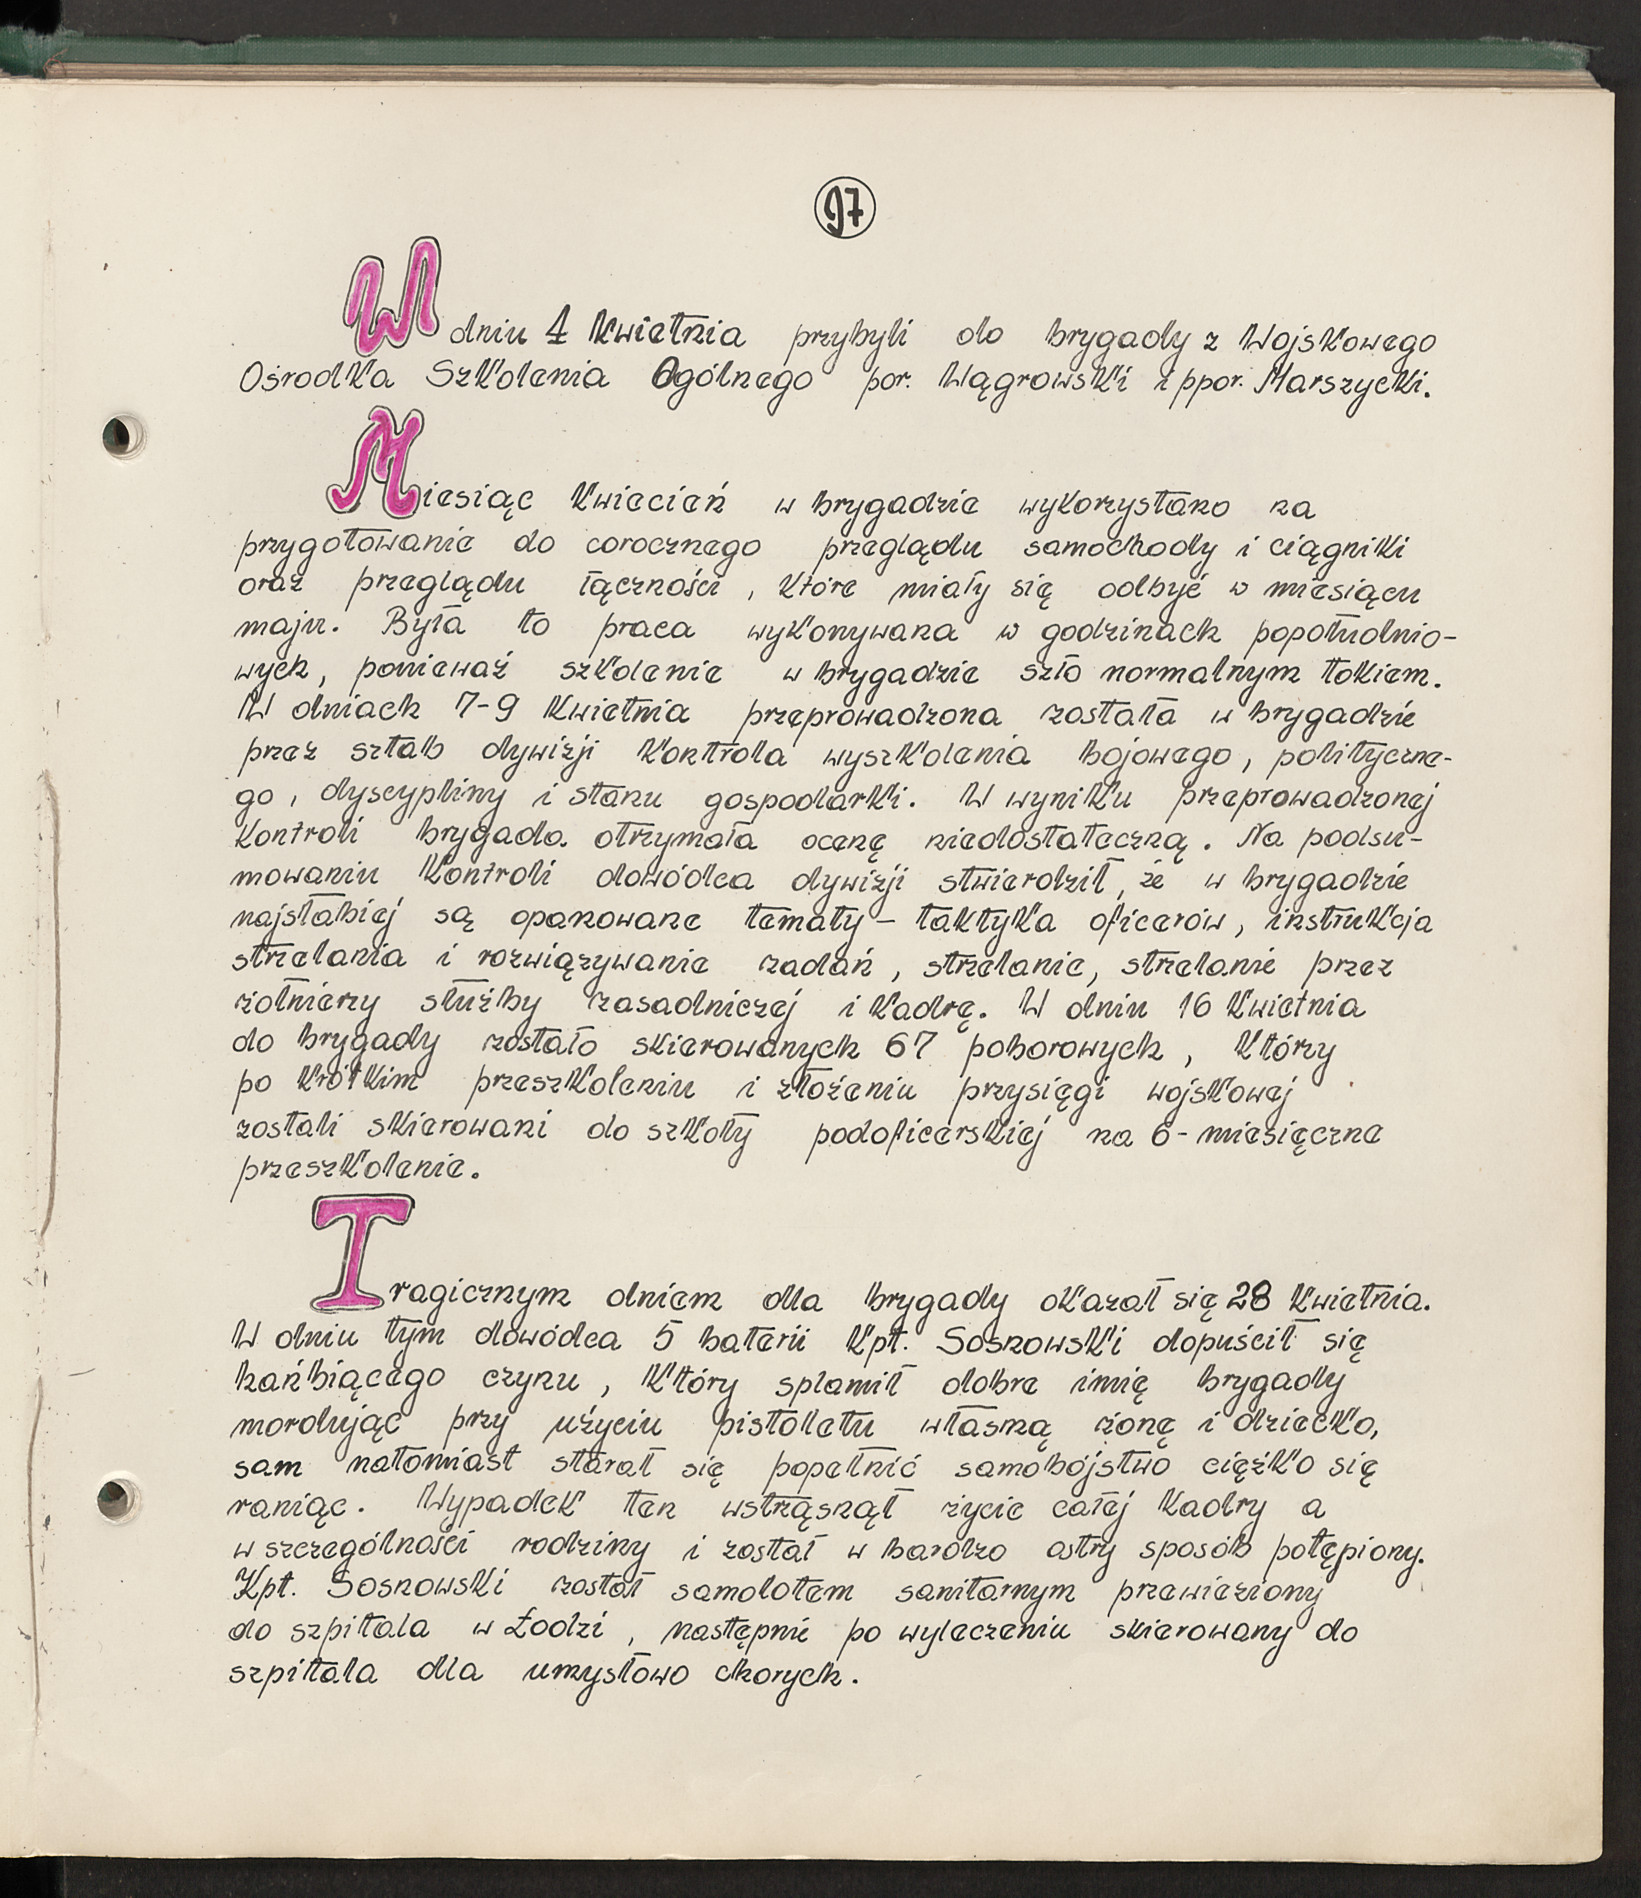 97
W dniu 4 kwietnia przybyli do brygady z Wojskowego
Ośrodka Szkolenia Ogólnego por. Wągrowski i ppor. Marszycki.
Miesiąc kwiecień w brygadzie wykorzystano na
przygotowanie do corocznego przeglądu samochody i ciągniki
oraz przeglądu łączności, które miały się odbyć w miesiącu
maju. Była to praca wykonywana w godzinach popołudnio-
wych, ponieważ szkolenie w brygadzie szło normalnym tokiem.
W dniach 7-9 kwietnia przeprowadzona została w brygadzie
przez sztab dywizji kontrola wyszkolenia bojowego, polityczne-
go, dyscypliny i stanu gospodarki. W wyniku przeprowadzonej
kontroli brygada otrzymała ocenę niedostateczną. Na podsu-
mowaniu kontroli dowódca dywizji stwierdził, że w brygadzie
najsłabiej są opanowane tematy - taktyka oficerów, instrukcja
strzelania i rozwiązywanie zadań, strzelanie, strzelanie przez
żołnierzy służby zasadniczej i kadrę. W dniu 16 kwietnia
do brygady zostało skierowanych 67 poborowych, którzy
po krótkim przeszkoleniu i złożeniu przysięgi wojskowej
zostali skierowani do szkoły podoficerskiej na 6-miesięczne
przeszkolenie.
Tragicznym dniem dla brygady okazał się 28 kwietnia.
W dniu tym dowódca 5 baterii kpt. Sosnowski dopuścił się
hańbiącego czynu, który splamił dobre imię brygady
mordując przy użyciu pistoletu własną żonę i dziecko,
sam natomiast starał się popełnić samobójstwo ciężko się
raniąc. Wypadek ten wstrząsnął życie całej kadry a
w szczególności rodziny i został w bardzo ostry sposób potępiony.
Kpt. Sosnowski został samolotem sanitarnym przewieziony
do szpitala w Łodzi, następnie po wyleczeniu skierowany do
szpitala dla umysłowo chorych.